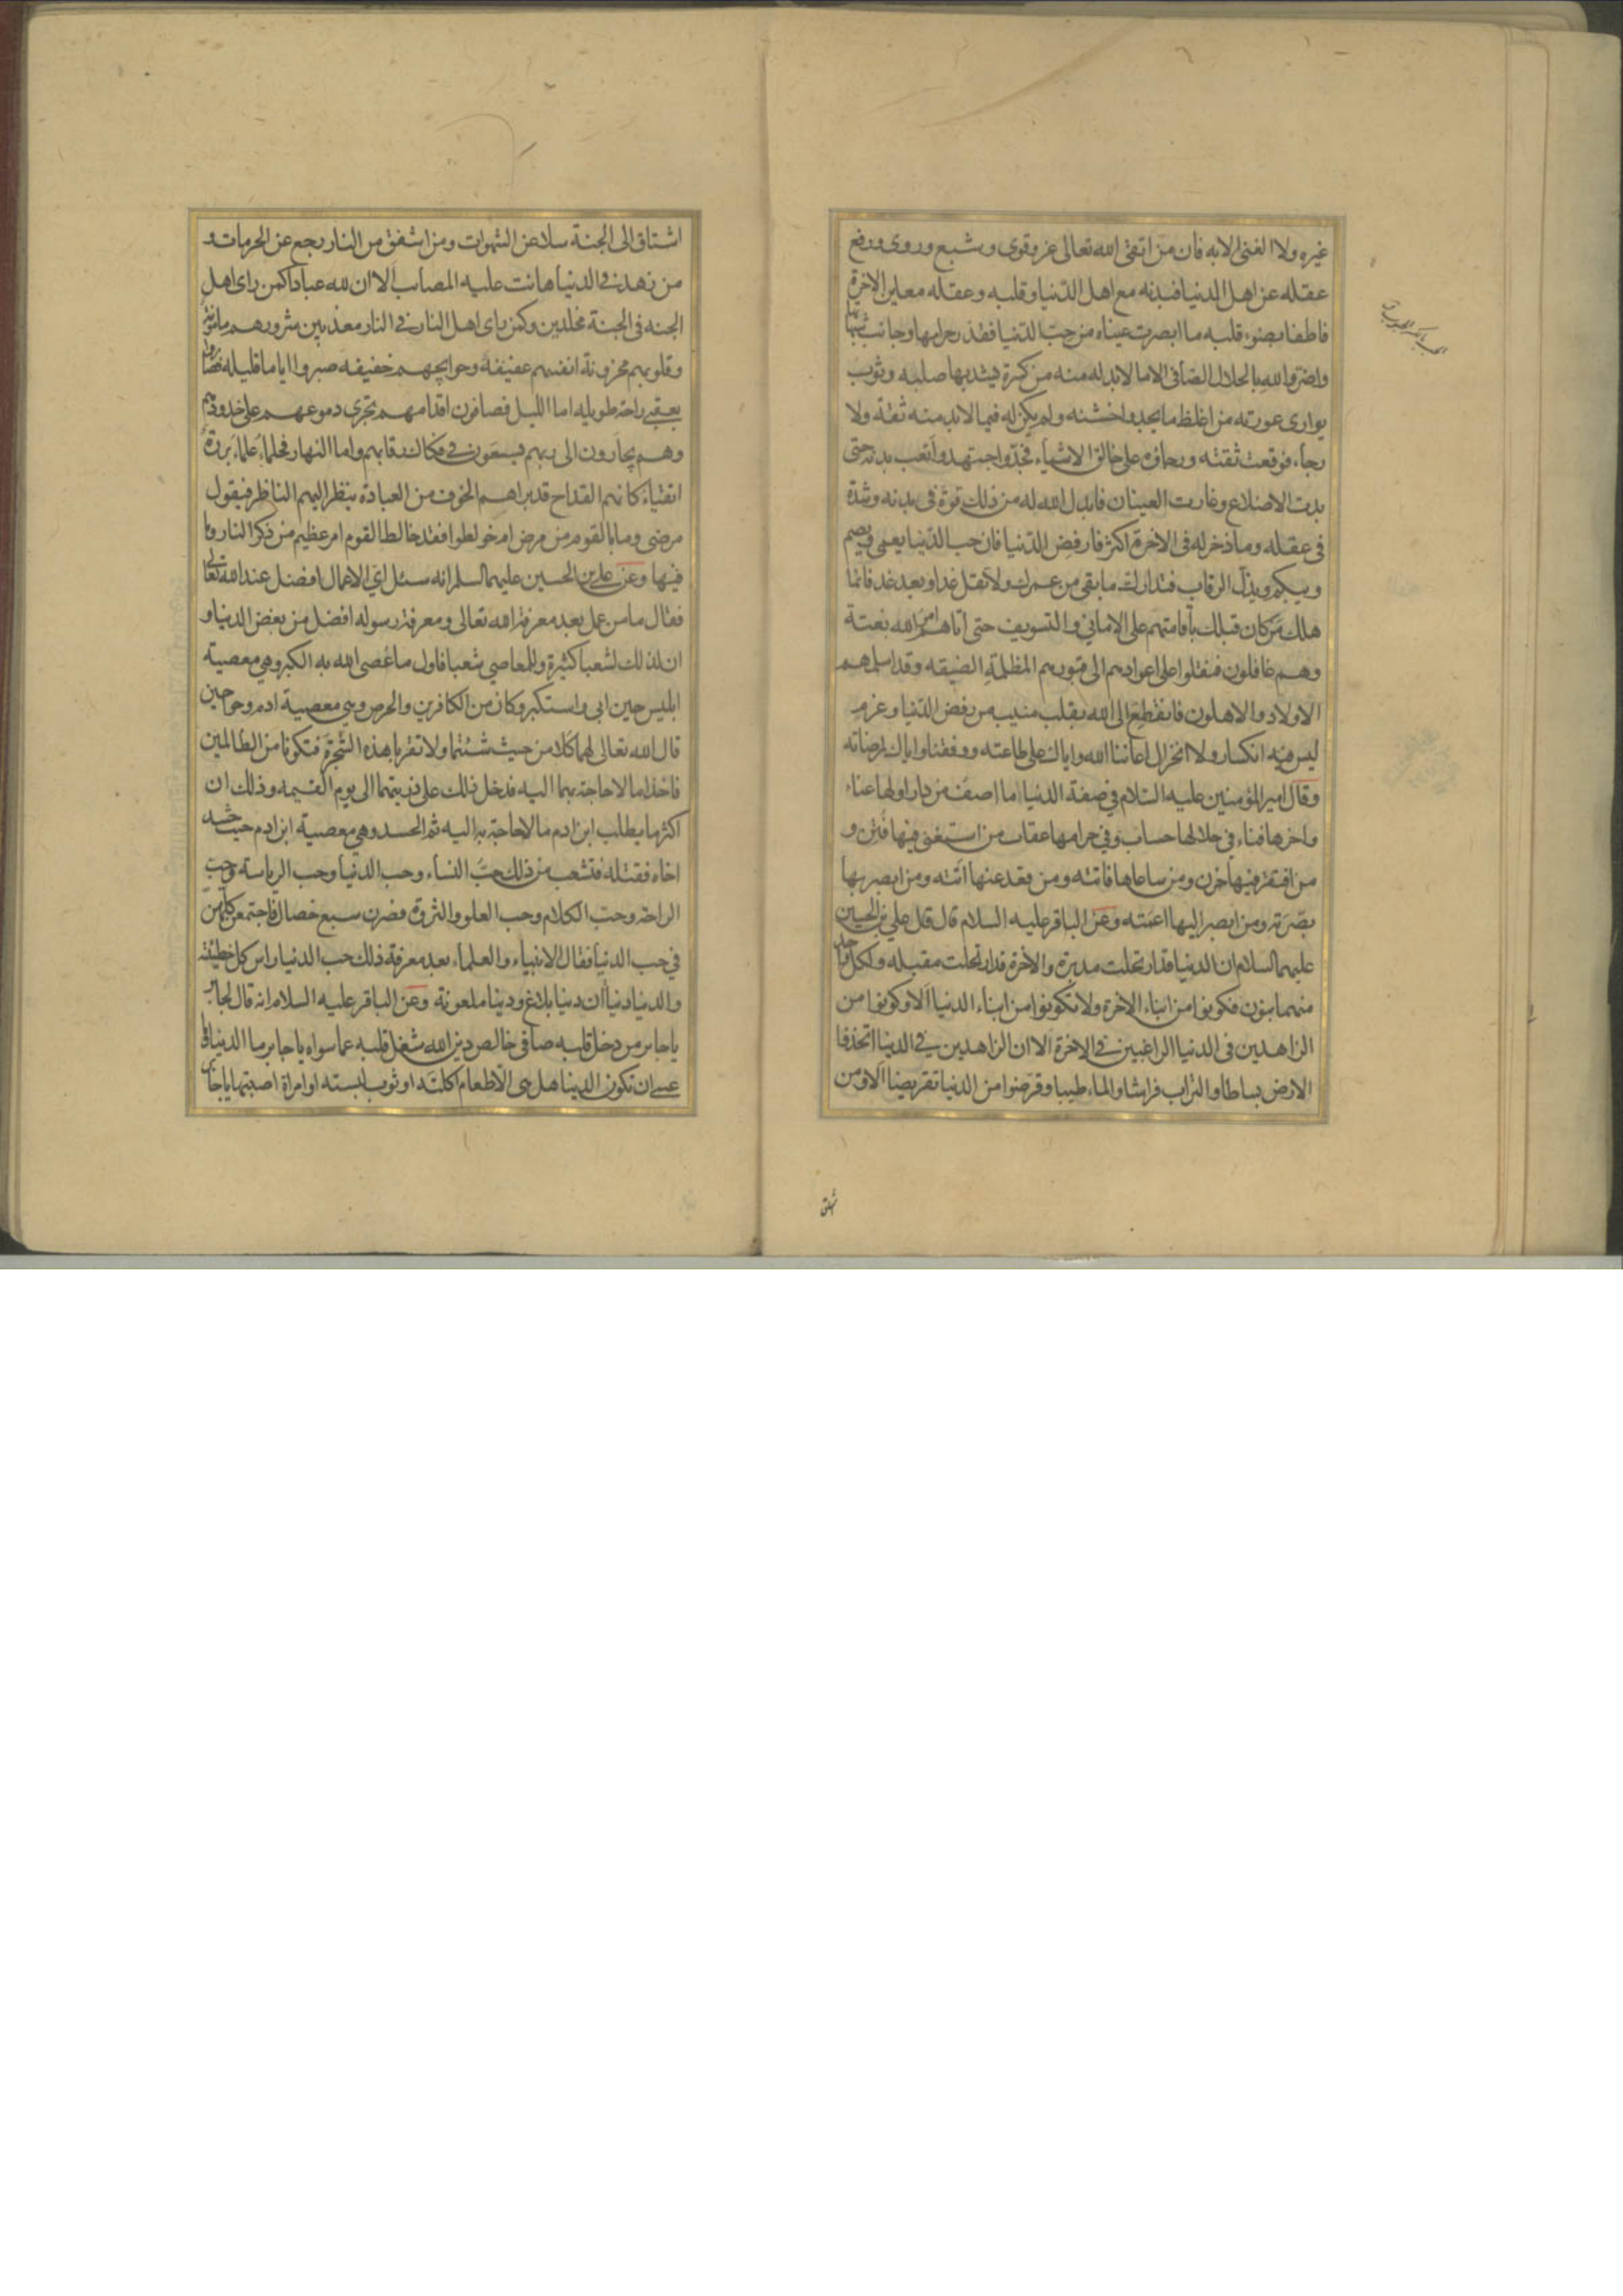 غيره ولا الغنى الا به فان من اتقى الله تعالى عز وقوى وشبع وروى ورفع
عقله عن اهل الدنيا فبدنه مع اهل الدنيا وقلبه وعقله معاين الاخرة
فاطفا بضوء قلبه ما ابصرت عيناه من حب الدنيا فقذر حرامها وجانب شبهاتها
واضر والله بالحلال الصافى الا ما لا بد له منه من كسرة يشد بها صلبه وثوب
يوارى عورته من اغلظ ما يجد واخشنه ولم يكن له فيما لا بد منه ثقة ولا
رجاء فوقعت ثقته ورجاؤه على خالق الاشياء فجد واجتهد واتعب بدنه حتى
بدت الاضلاع وغارت العينان فابدل الله له من ذلك قوة فى بدنه وشدة
فى عقله وما ذخر له فى الاخرة اكثر فارفض الدنيا فان حب الدنيا يعمى ويصم
ويبكم ويذل الرقاب فتدارك ما بقى من عمرك ولا تقل غدا وبعد غد فانما
هلك من كان قبلك باقامتهم على الامانى والتسويف حتى اتاهم امر الله بغتة
وهم غافلون فنقلوا على اعوادهم الى قبورهم المظلمة الضيقه وقد اسلمهم
الاولاد والاهلون فانقطع الى الله بقلب منيب من رفض الدنيا وعزم
ليس فيه انكسار ولا انخزال اعاننا الله واياك على طاعته ووفقنا واياك لمرضاته
وقال امير المؤمنين عليه السلام في صفة الدنيا ما اصف من دار اولها عناء
واخرها فناء في حلالها حساب وفي حرامها عقاب من استغنى فيها فتن و
من افتقر فيها حزن ومن ساعاها فاتته ومن قعد عنها اتته ومن ابصر بها
بصرته ومن ابصر اليها اعمته وعن الباقر عليه السلام قال قال علي بن الحسين
عليهما السلام ان الدنيا قد ارتحلت مدبرة والاخرة قد ارتحلت مقبله ولكل واحد
منهما بنون فكونوا من ابناء الاخرة ولا تكونوا من ابناء الدنيا الا وكونوا من
الزاهدين فى الدنيا الراغبين في الاخرة الا ان الزاهدين في الدنيا اتخذوا
الارض بساطا والتراب فراشا والماء طيبا وقرضوا من الدنيا تقريضا الا ومن
اشتاق الى الجنة سلا عن الشهوات ومن اشفق من النار رجع عن الحرمات و
من زهد في الدنيا هانت عليه المصائب الا ان لله عبادا كمن راى اهل
الجنه فى الجنة مخلدين وكمن راى اهل النار في النار معذبين شرورهم مامونة
وقلوبهم محزونة انفسهم عفيفة وحوايجهم خفيفه صبروا اياما قليله فصاروا
بعقبى راحة طويله اما الليل فصافون اقدامهم تجرى دموعهم على خدودهم
وهم يجارون الى ربهم فيسعون في فكاك رقابهم واما النهار فحلماء علماء بررة
اتقياء كانهم القداح قد براهم الخوف من العبادة ينظر اليهم الناظر فيقول
مرضى وما بالقوم من مرض ام خولطوا فقد خالط القوم امر عظيم من ذكر النار وما
فيها وعن علي بن الحسين عليهما السلم انه سئل اي الاعمال افضل عند الله تعالى
فقال ما من عمل بعد معرفة الله تعالى ومعرفة رسوله افضل من بغض الدنيا و
ان لذلك لشعبا كثيرة وللمعاصي شعبا فاول ما عصى الله به الكبر وهي معصية
ابليس حين ابى واستكبر وكان من الكافرين والحرص وهي معصية ادم وحوا حين
قال الله تعالى لهما كلا من حيث شئتما ولا تقربا هذه الشجرة فتكونا من الظالمين
فاخذا ما لا حاجة بهما اليه فدخل ذلك على ذريتهما الى يوم القيمه وذلك ان
اكثر ما يطلب ابن ادم ما لا حاجة به اليه ثم الحسد وهي معصية ابن ادم حيث حسد
اخاه فقتله فتشعب من ذلك حب النساء وحب الدنيا وحب الرياسة وحب
الراحة وحب الكلام وحب العلو والثروة فصرن سبع خصال فاجتمعن كلهن
في حب الدنيا فقال الانبياء والعلماء بعد معرفة ذلك حب الدنيا راس كل خطيئة
والدنيا دنيا ان دنيا بلاغ ودنيا ملعونة وعن الباقر عليه السلام انه قال لجابر
يا جابر من دخل قلبه صافى خالص دين الله شغل قلبه عما سواه يا جابر ما الدنيا وما
عسى ان تكون الدنيا هل هى الا طعام اكلته او ثوب لبسته او امراة اصبتها يا جابر